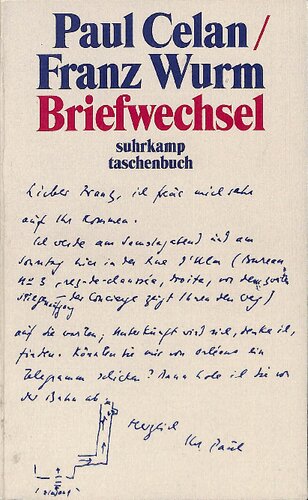 Paul Celan/
Franz Wurm
Briefwechsel
suhrkamp
taschenbuch
Lieber Franz, ich freue mich sehr
auf Ihr Kommen.
Ich werde am Samstagabend und am
Sonntag hier in der Rue d'Ulm (Bureau
No 3, rez-de-chaussée, droite, vor dem zweiten
Stiegenaufgang – der Concierge zeigt Ihnen den Weg)
auf Sie warten; Unterkunft wird sich, denke ich,
finden. Könnten Sie mir von Orléans ein
Telegramm schicken? Dann hole ich Sie von
der Bahn ab.
Herzlich
Ihr Paul